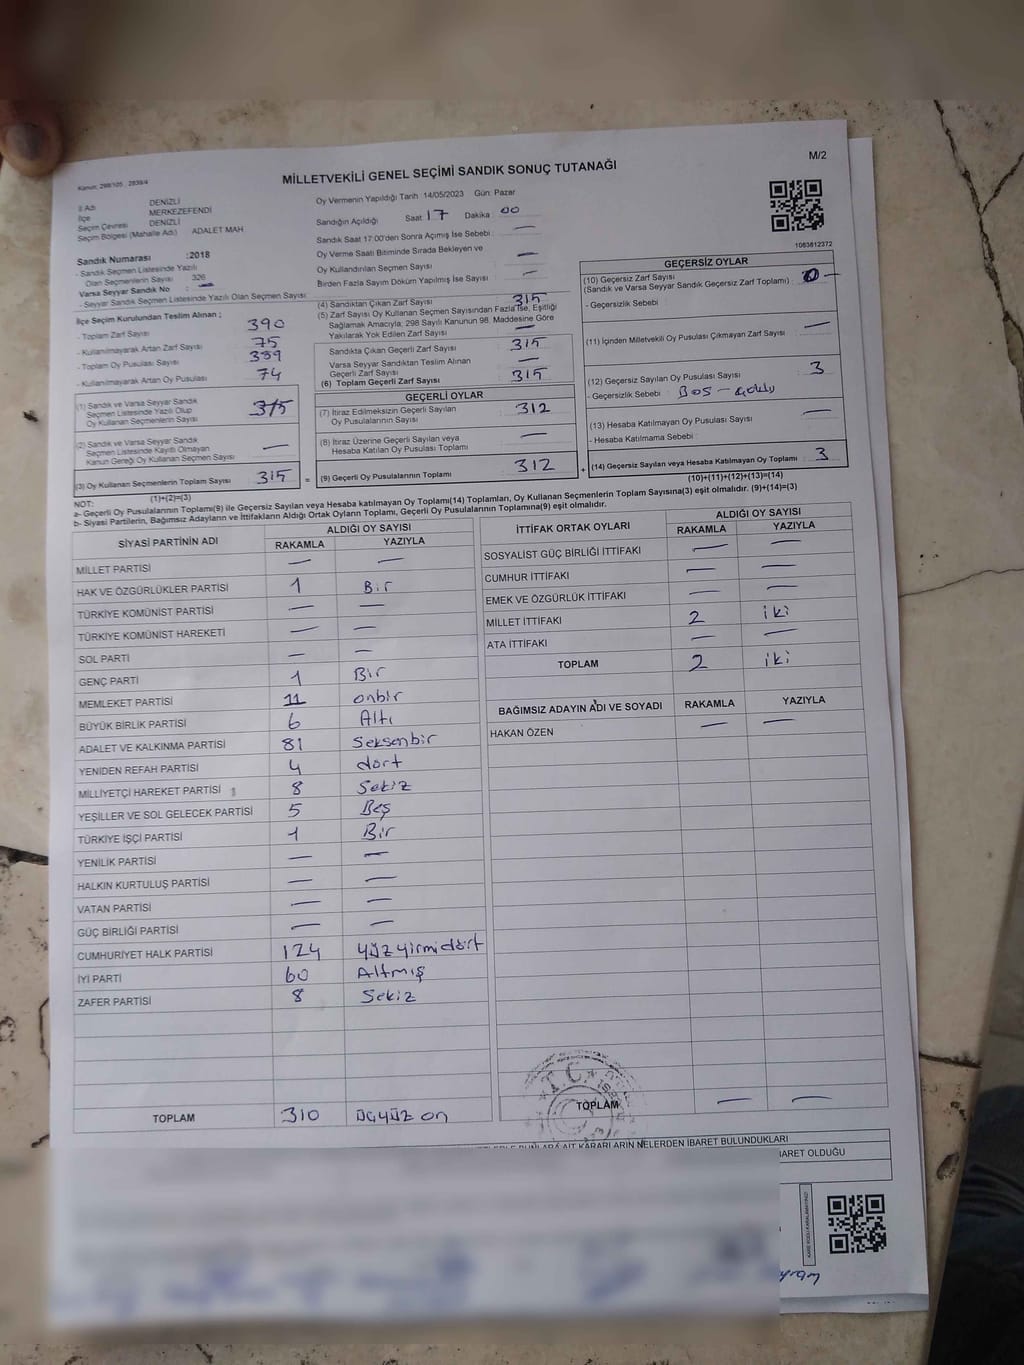 Kanun: 298/105 , 2839/4
MİLLETVEKİLİ GENEL SEÇİMİ SANDIK SONUÇ TUTANAĞI
M/2
İl Adı DENİZLİ
İlçe MERKEZEFENDİ
Seçim Çevresi DENİZLİ
Seçim Bölgesi (Mahalle Adı) ADALET MAH
Sandık Numarası :2018
- Sandık Seçmen Listesinde Yazılı
Olan Seçmenlerin Sayısı 326
Varsa Seyyar Sandık No : —
- Seyyar Sandık Seçmen Listesinde Yazılı Olan Seçmen Sayısı:
Oy Vermenin Yapıldığı Tarih 14/05/2023 Gün: Pazar
Sandığın Açıldığı Saat 17 Dakika 00
Sandık Saat 17:00'den Sonra Açımış İse Sebebi : —
Oy Verme Saati Bitiminde Sırada Bekleyen ve
Oy Kullandırılan Seçmen Sayısı —
Birden Fazla Sayım Döküm Yapılmış İse Sayısı —
1063612372
İlçe Seçim Kurulundan Teslim Alınan ;
- Toplam Zarf Sayısı 390
- Kullanılmayarak Artan Zarf Sayısı 75
- Toplam Oy Pusulası Sayısı 389
- Kullanılmayarak Artan Oy Pusulası 74
(1) Sandık ve Varsa Seyyar Sandık
Seçmen Listesinde Yazılı Olup
Oy Kullanan Seçmenlerin Sayısı 315
(2) Sandık ve Varsa Seyyar Sandık
Seçmen Listesinde Kayıtlı Olmayan
Kanun Gereği Oy Kullanan Seçmen Sayısı —
(3) Oy Kullanan Seçmenlerin Toplam Sayısı 315 =
(1)+(2)=(3)
(4) Sandıktan Çıkan Zarf Sayısı 315
(5) Zarf Sayısı Oy Kullanan Seçmen Sayısından Fazla İse, Eşitliği
Sağlamak Amacıyla, 298 Sayılı Kanunun 98. Maddesine Göre
Yakılarak Yok Edilen Zarf Sayısı —
Sandıkta Çıkan Geçerli Zarf Sayısı 315
Varsa Seyyar Sandıktan Teslim Alınan
Geçerli Zarf Sayısı —
(6) Toplam Geçerli Zarf Sayısı 315
GEÇERLİ OYLAR
(7) İtiraz Edilmeksizin Geçerli Sayılan
Oy Pusulalarının Sayısı 312
(8) İtiraz Üzerine Geçerli Sayılan veya
Hesaba Katılan Oy Pusulası Toplamı —
(9) Geçerli Oy Pusulalarının Toplamı 312 +
GEÇERSİZ OYLAR
(10) Geçersiz Zarf Sayısı
(Sandık ve Varsa Seyyar Sandık Geçersiz Zarf Toplamı) : 0 —
- Geçersizlik Sebebi :
(11) İçinden Milletvekili Oy Pusulası Çıkmayan Zarf Sayısı —
(12) Geçersiz Sayılan Oy Pusulası Sayısı 3
- Geçersizlik Sebebi : BOŞ -
(13) Hesaba Katılmayan Oy Pusulası Sayısı —
- Hesaba Katılmama Sebebi
(14) Geçersiz Sayılan veya Hesaba Katılmayan Oy Toplamı 3
(10)+(11)+(12)+(13)=(14)
NOT:
a- Geçerli Oy Pusulalarının Toplamı(9) ile Geçersiz Sayılan veya Hesaba katılmayan Oy Toplamı(14) Toplamları, Oy Kullanan Seçmenlerin Toplam Sayısına(3) eşit olmalıdır. (9)+(14)=(3)
b- Siyasi Partilerin, Bağımsız Adayların ve İttifakların Aldığı Ortak Oyların Toplamı, Geçerli Oy Pusulalarının Toplamına(9) eşit olmalıdır.
SİYASİ PARTİNİN ADI ALDIĞI OY SAYISI
RAKAMLA YAZIYLA
MİLLET PARTİSİ — —
HAK VE ÖZGÜRLÜKLER PARTİSİ 1 Bir
TÜRKİYE KOMÜNİST PARTİSİ — —
TÜRKİYE KOMÜNİST HAREKETİ — —
SOL PARTİ — —
GENÇ PARTİ 1 Bir
MEMLEKET PARTİSİ 11 onbir
BÜYÜK BİRLİK PARTİSİ 6 Altı
ADALET VE KALKINMA PARTİSİ 81 Seksenbir
YENİDEN REFAH PARTİSİ 4 dört
MİLLİYETÇİ HAREKET PARTİSİ 8 Sekiz
YEŞİLLER VE SOL GELECEK PARTİSİ 5 Beş
TÜRKİYE İŞÇİ PARTİSİ 1 Bir
YENİLİK PARTİSİ — —
HALKIN KURTULUŞ PARTİSİ — —
VATAN PARTİSİ — —
GÜÇ BİRLİĞİ PARTİSİ — —
CUMHURİYET HALK PARTİSİ 124 yüzyirmidört
İYİ PARTİ 60 Altmış
ZAFER PARTİSİ 8 Sekiz
TOPLAM 310 üçyüz on
İTTİFAK ORTAK OYLARI ALDIĞI OY SAYISI
RAKAMLA YAZIYLA
SOSYALİST GÜÇ BİRLİĞİ İTTİFAKI — —
CUMHUR İTTİFAKI — —
EMEK VE ÖZGÜRLÜK İTTİFAKI — —
MİLLET İTTİFAKI 2 iki
ATA İTTİFAKI — —
TOPLAM 2 iki
BAĞIMSIZ ADAYIN ADI VE SOYADI RAKAMLA YAZIYLA
HAKAN ÖZEN — —
T.C.
TOPLAM — —
AİT KARARLARIN NELERDEN İBARET BULUNDUKLARI
İBARET OLDUĞU